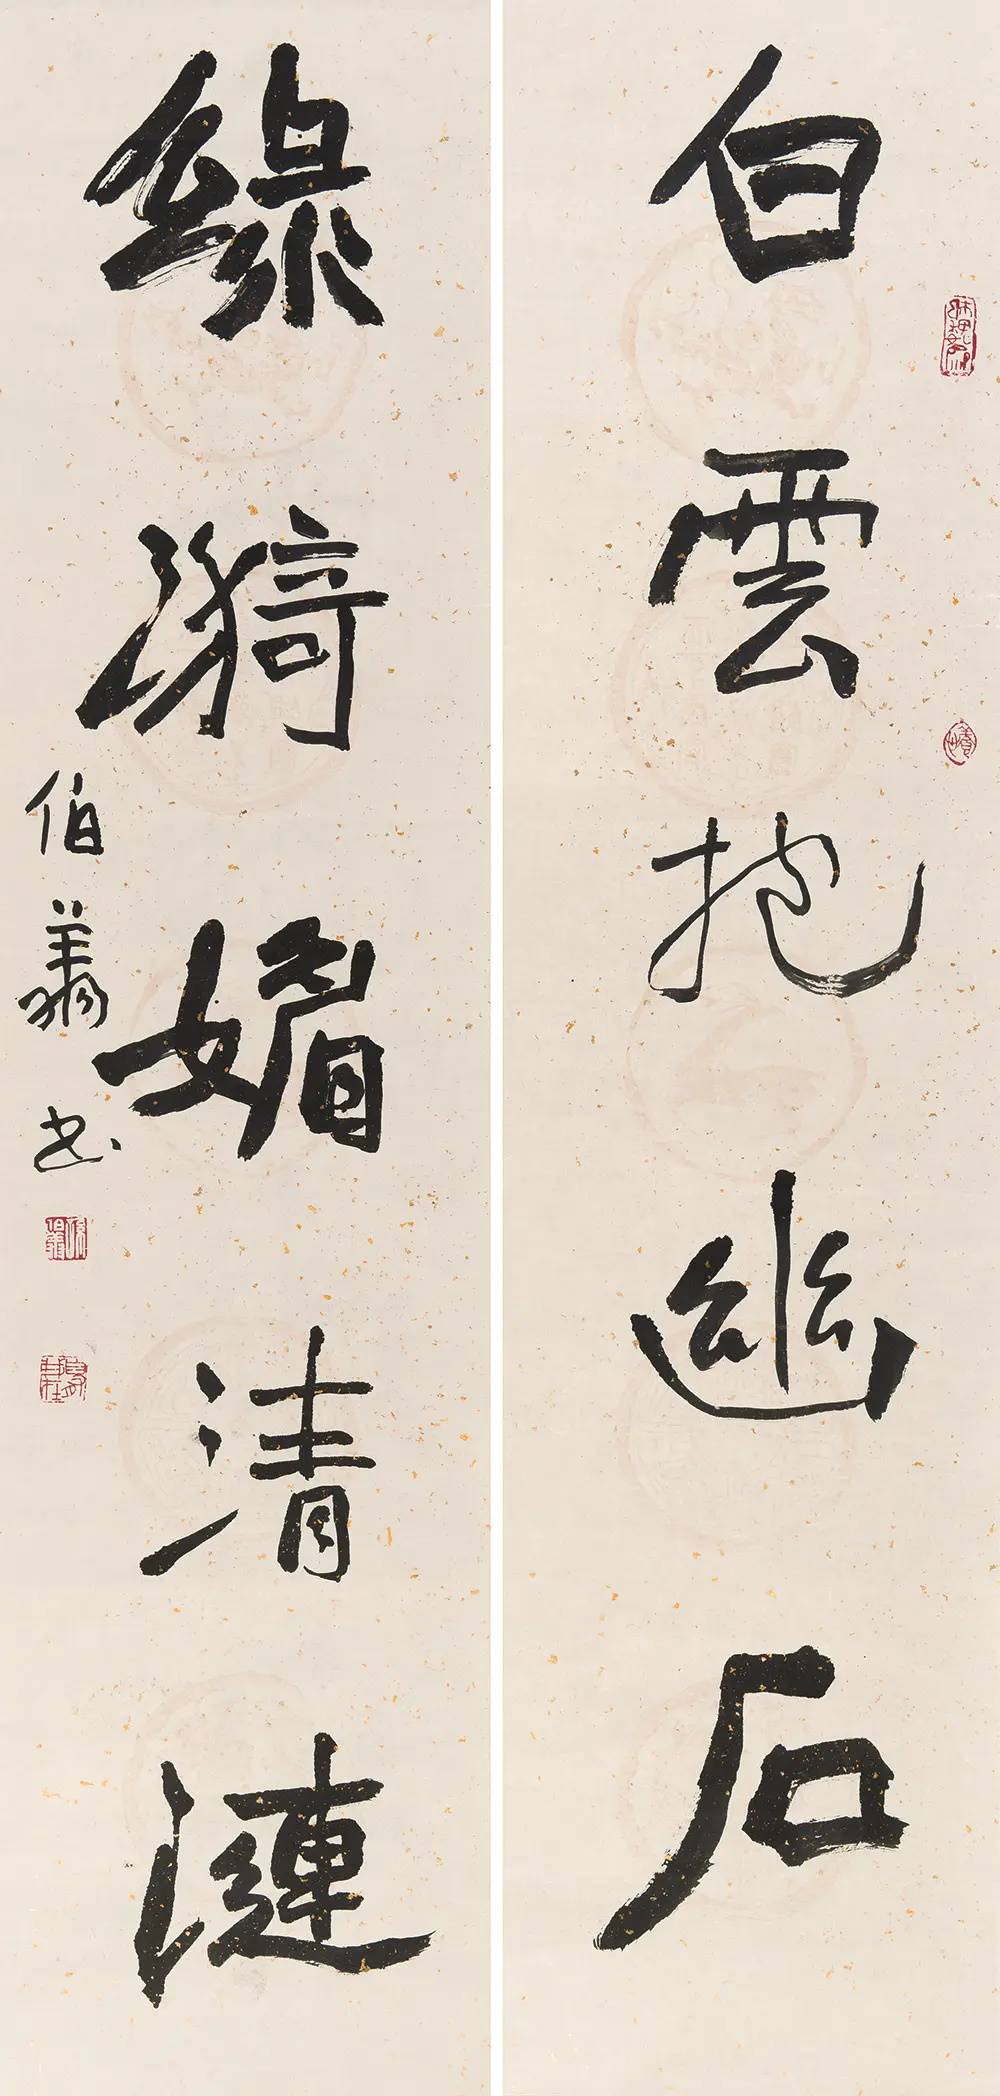 白雲抱幽石
綠漪媚清漣
伯翔書